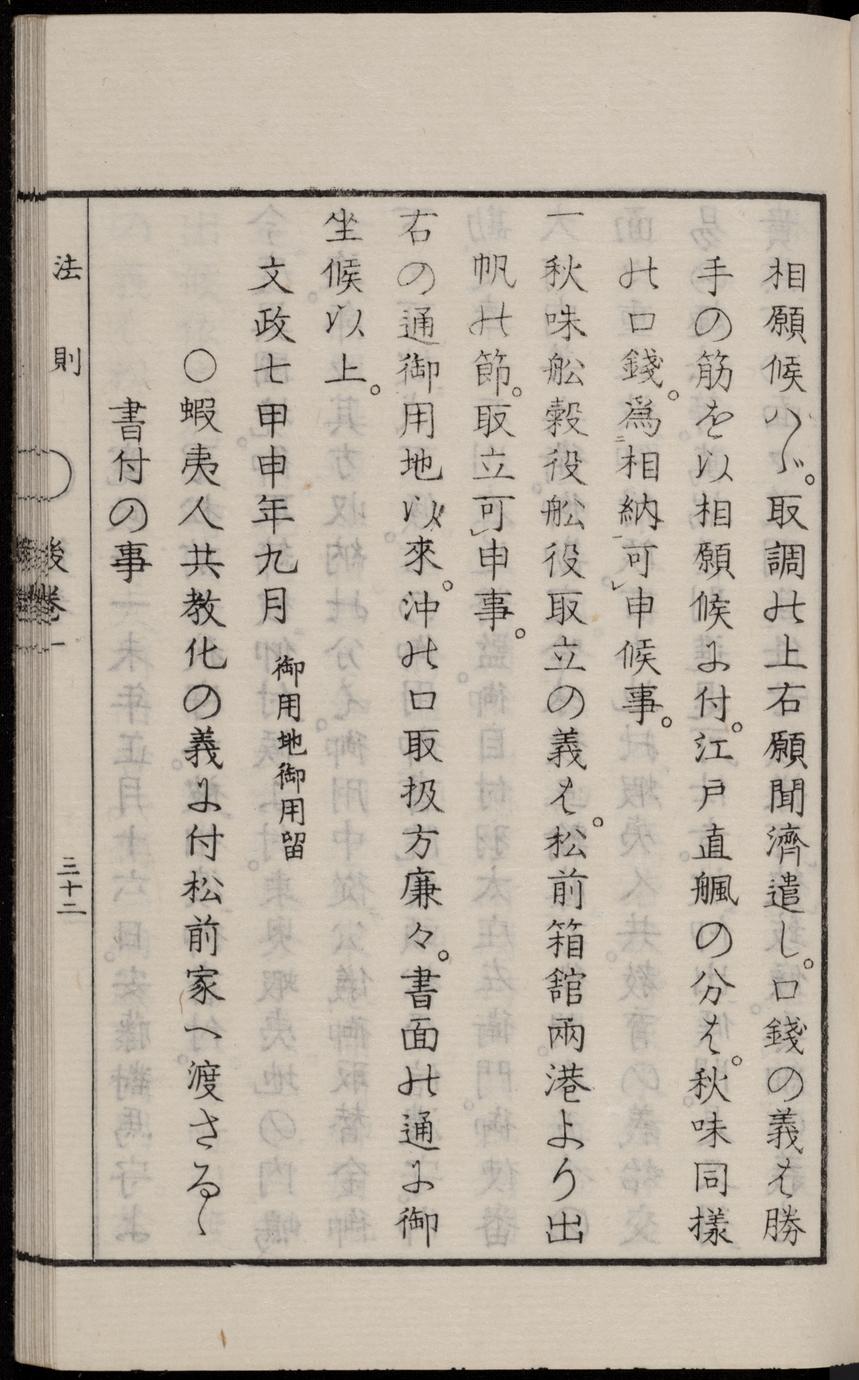 相願候ハゞ。取調の上右願聞濟遣し。口錢の義は勝
手の筋を以相願候に付。江戸直颿の分は。秋味同樣
の口錢。爲二相納一可レ申候事。
一秋味舩穀役舩役取立の義は。松前箱舘兩港より出
帆の節。取立可レ申事。
右の通御用地以來。沖の口取扱方廉々。書面の通に御
坐候以上。
文政七甲申年九月 御用地御用留
○蝦夷人共教化の義に付松前家へ渡さるゝ
書付の事
法則 後卷一 三十二